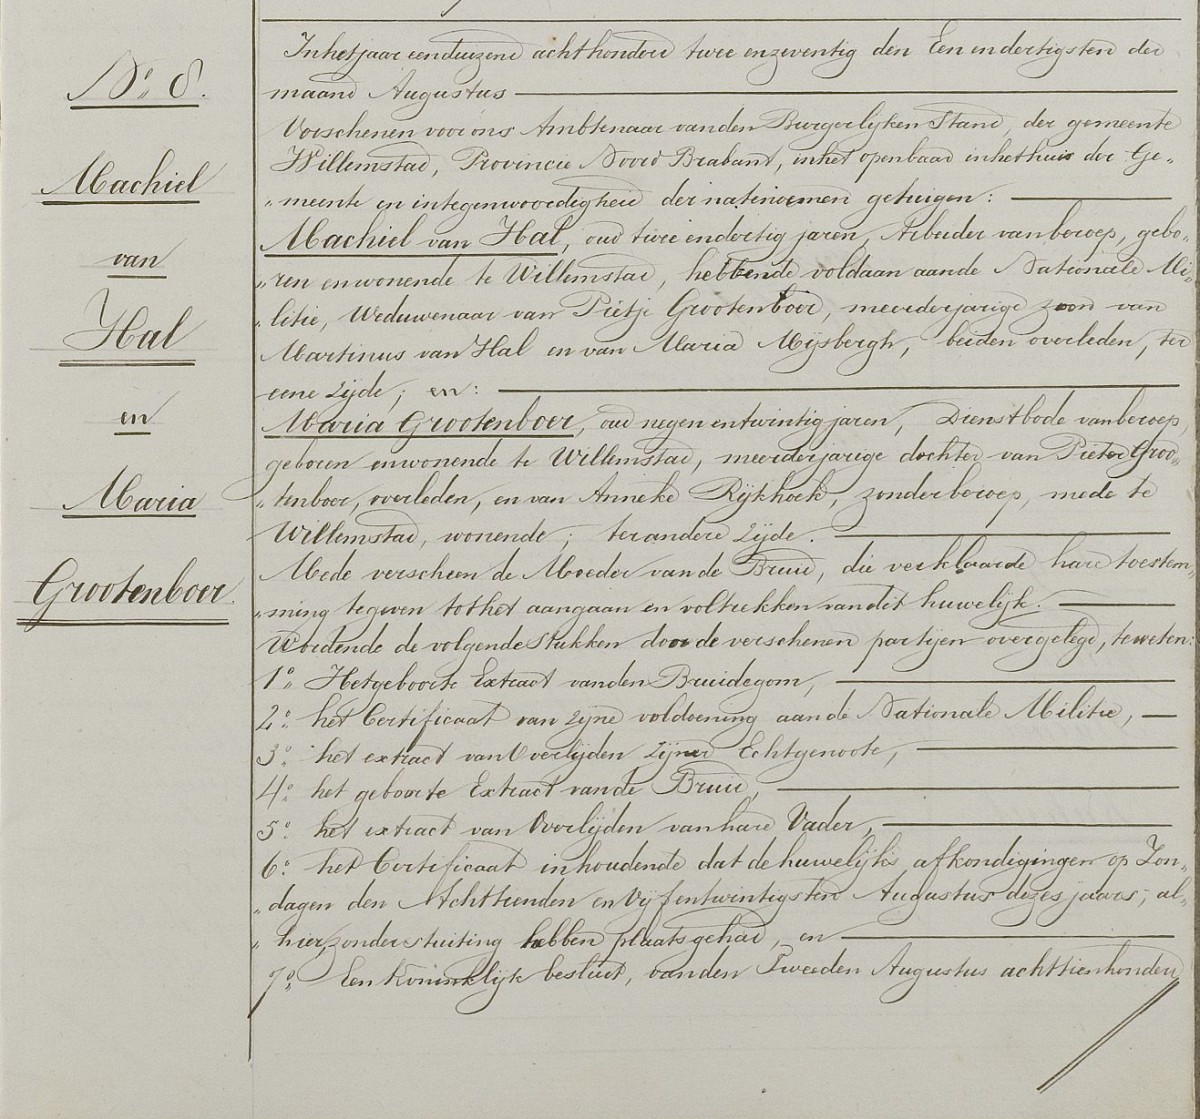 No. 8.
Machiel
van
Hal
en
Maria
Grootenboer.
In het jaar eenduizend achthonderd twee en zeventig den Een en dertigsten der
maand Augustus
Verschenen voor ons Ambtenaar van den Burgerlijken Stand, der gemeente
Willemstad, Provincie Noord Brabant, in het openbaar in het huis der Ge„
„meente en in tegenwoordigheid der natenoemen getuigen:
Machiel van Hal, oud twee en dertig jaren, Arbeider van beroep, gebo„
„ren en wonende te Willemstad, hebbende voldaan aan de Nationale Mi„
„litie, Weduwenaar van Pietje Grootenboer, meerderjarige zoon van
Martinus van Hal en van Maria Mijsbergh, beiden overleden, ter
eene zijde; en:
Maria Grootenboer, oud negen en twintig jaren, Dienstbode van beroep,
geboren en wonende te Willemstad, meerderjarige dochter van Pieter Groo„
„tenboer, overleden, en van Anneke Rijkhoek, zonder beroep, mede te
Willemstad, wonende; ter andere zijde.
Mede verscheen de Moeder van de Bruid, die verklaarde hare toestem„
„ming te geven tot het aangaan en voltrekken van dit huwelijk.
Wordende de volgende stukken door de verschenen partijen overgelegd, te weten:
1o. Het geboorte Extract van den Bruidegom,
2o. het Certificaat van zijne voldoening aan de Nationale Militie,
3o. het extract van Overlijden zijner Echtgenoote,
4o. het geboorte Extract van de Bruid,
5o. het extract van Overlijden van hare Vader,
6o. het Certificaat inhoudende dat de huwelijks afkondigingen op Zon„
„dagen den Achttienden en Vijf en twintigsten Augustus dezes jaars, al„
„hier, zonder stuiting hebben plaats gehad, en
7o. Een Koninklijk besluit, van den Tweeden Augustus achttienhonderd